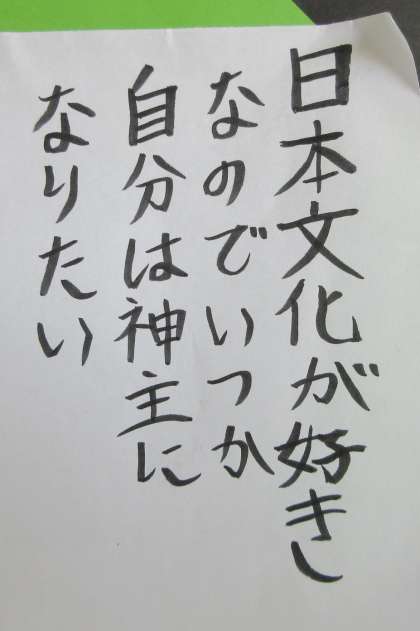 日本文化が好きし
なのでいつか
自分は神主に
なりたい